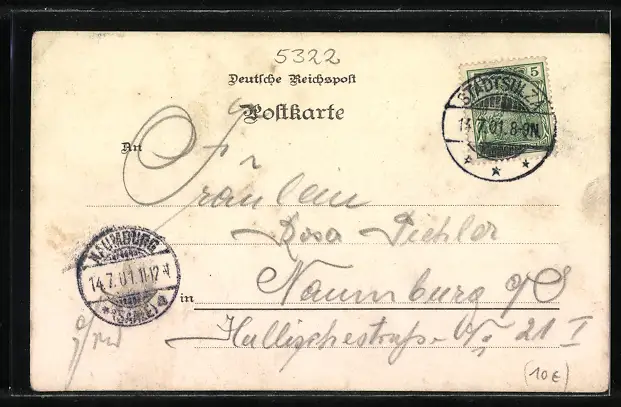 5322
Deutsche Reichspost
Postkarte
5
STADTSULZA
14.7.01.8-9N.
An
Fräulein
Rosa Pichler
NAUMBURG
14.7.01.11-12N
*(SAALE)
in
Naumburg a/S
Hallischestraße No 21 I
(10€)